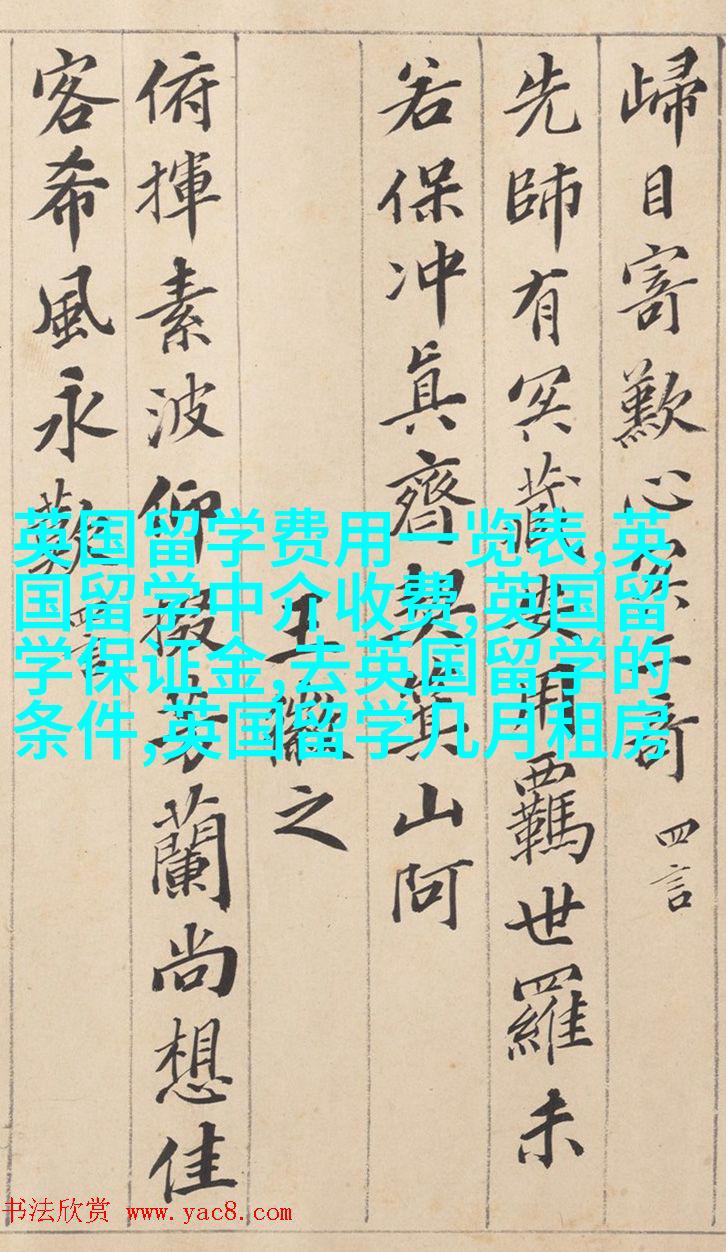 歸目寄歎心冥二奇 四言
先師有冥藏安用羈世羅未
若保冲真齊契箕山阿
王徽之
俯揮素波仰掇芳蘭尚想佳
客希風永歎 四言
英国留学费用一览表,英
国留学中介收费,英国留
学保证金,去英国留学的
条件,英国留学几月租房
书法欣赏 www.yac8.com